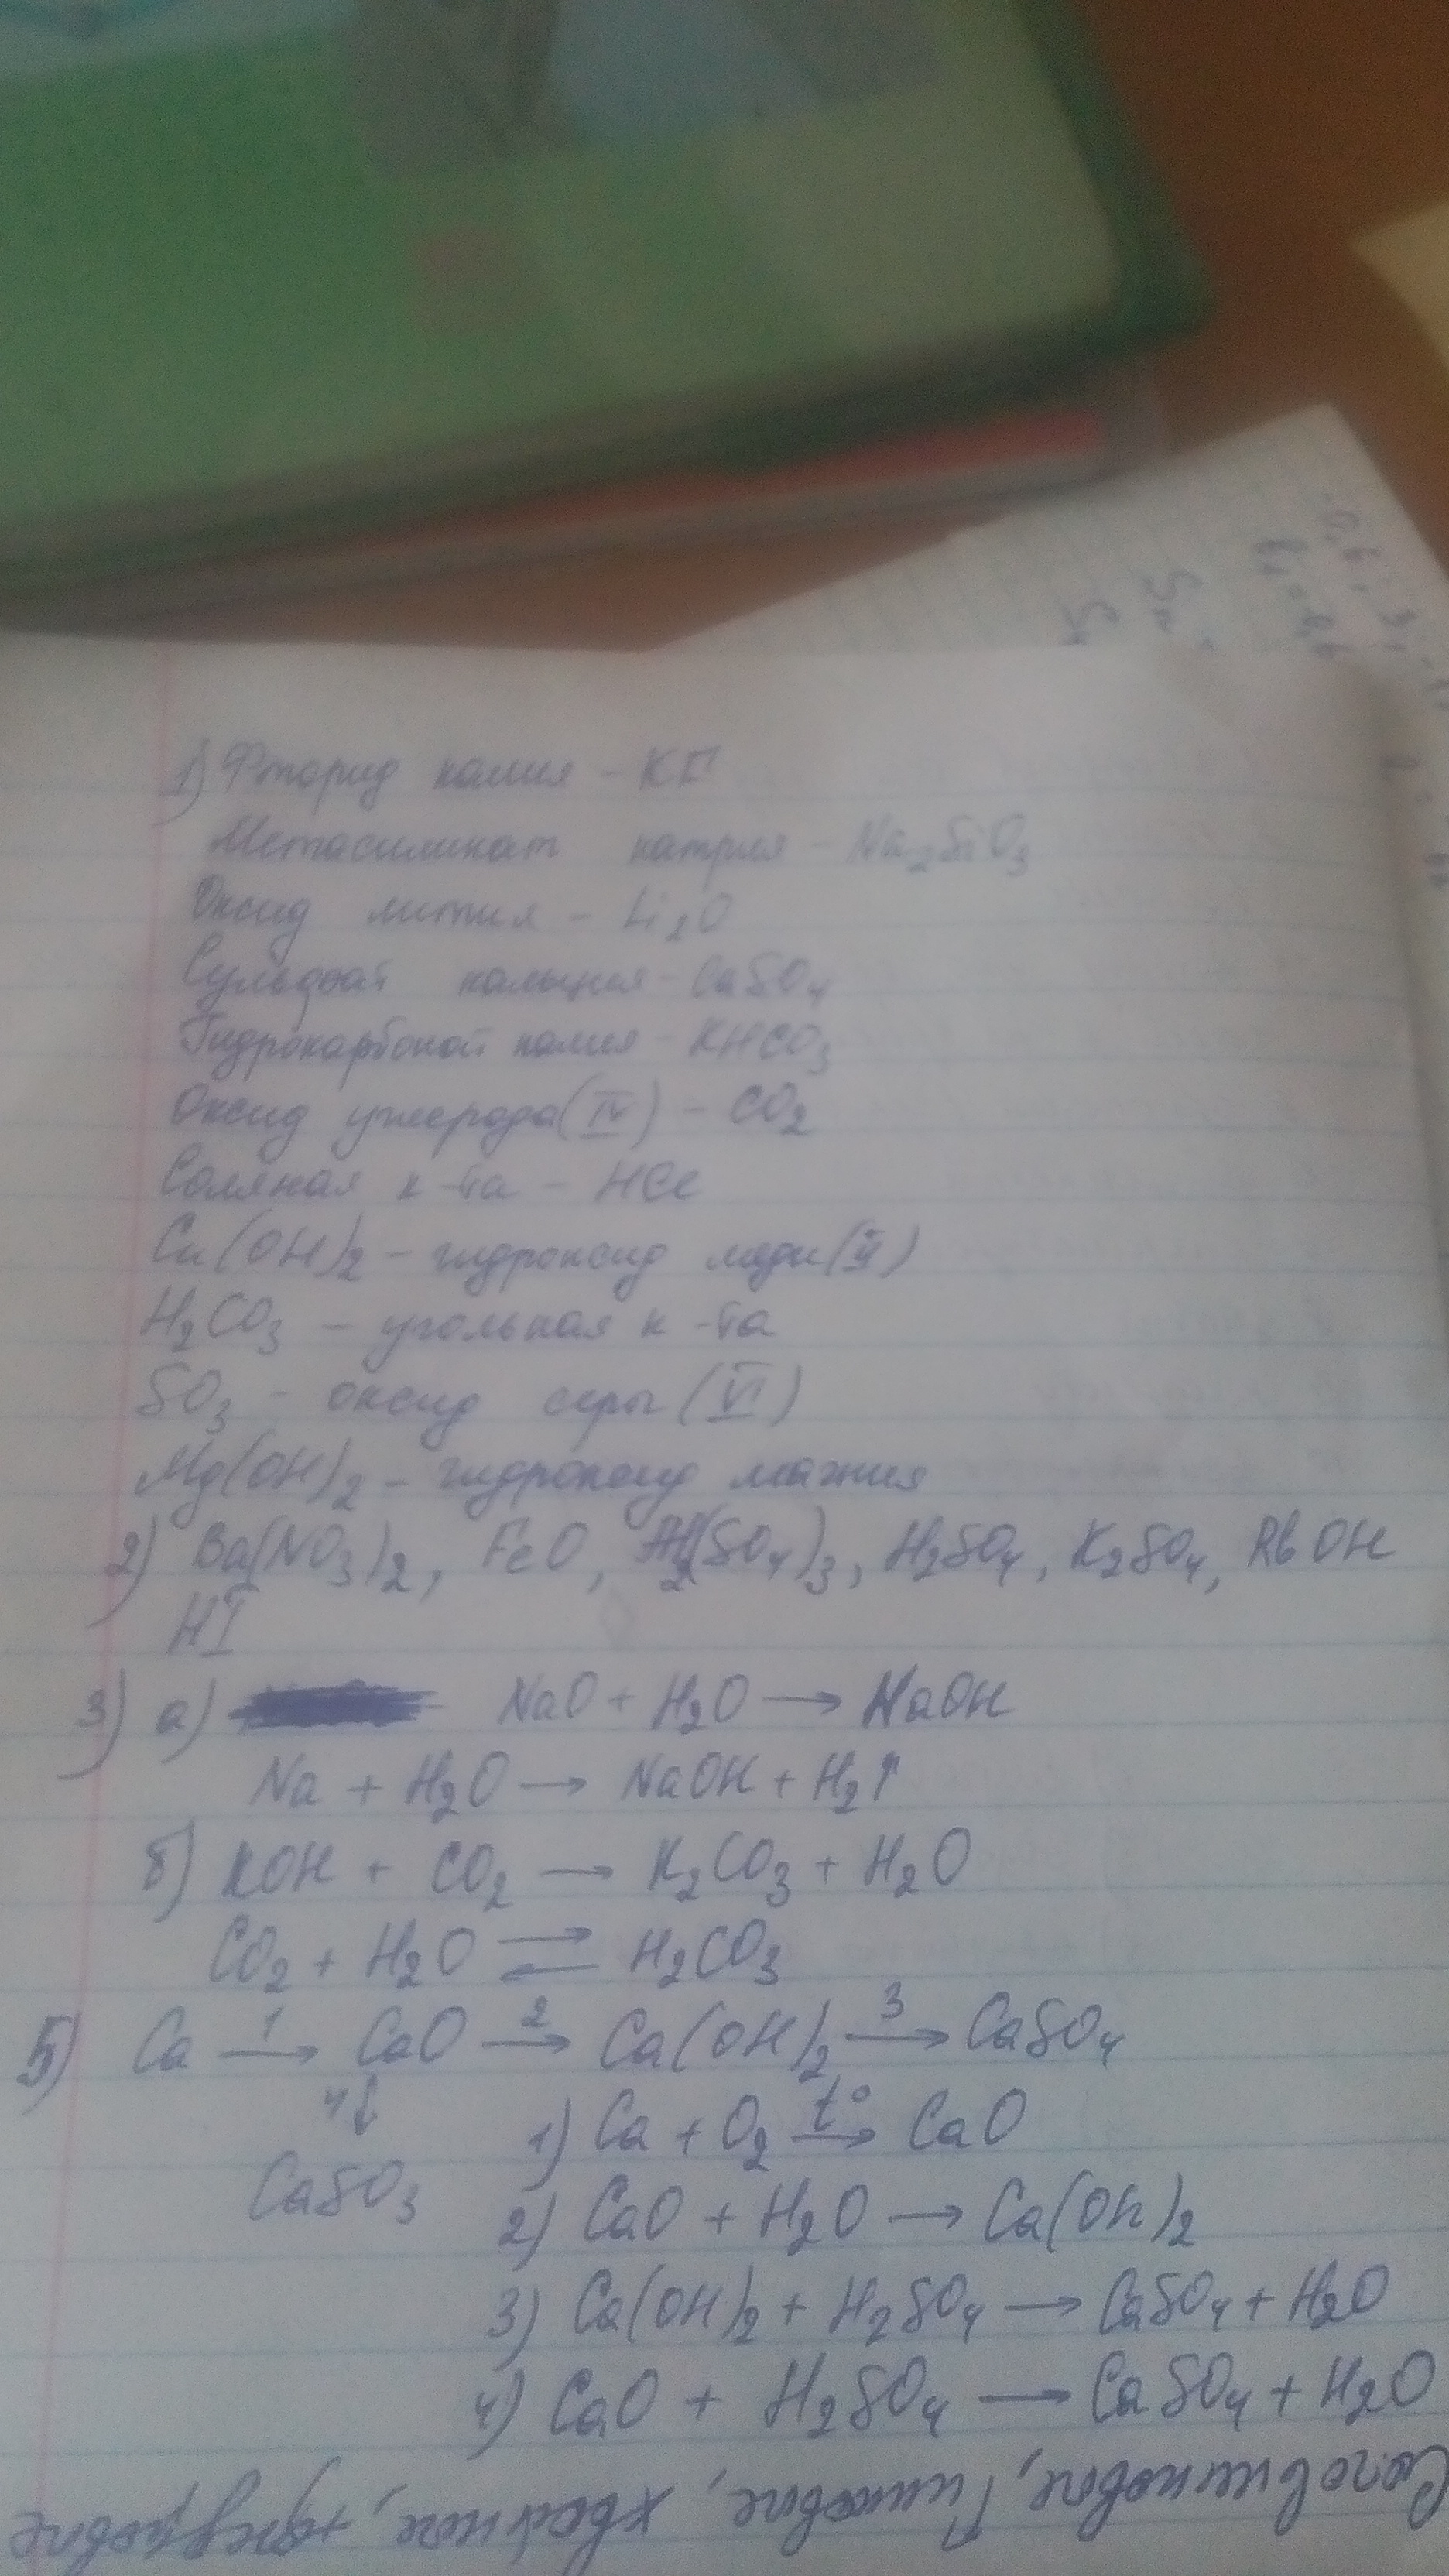 1) Фторид калия - KF
Метасиликат натрия - Na₂SiO₃
Оксид лития - Li₂O
Сульфат кальция - CaSO₄
Гидрокарбонат калия - KHCO₃
Оксид углерода (IV) - CO₂
Соляная к-та - HCl
Cu(OH)₂ - гидроксид меди (II)
H₂CO₃ - угольная к-та
SO₃ - оксид серы (VI)
Mg(OH)₂ - гидроксид магния
2) Ba(NO₃)₂, FeO, (SO₄)₃, H₂SO₄, K₂SO₄, RbOH
HI
3) а) NaO + H₂O → NaOH
Na + H₂O → NaOH + H₂↑
б) KOH + CO₂ → K₂CO₃ + H₂O
CO₂ + H₂O ⇄ H₂CO₃
5) Ca 1→ CaO 2→ Ca(OH)₂ 3→ CaSO₄
4↓
1) Ca + O₂ t°→ CaO
CaSO₃
2) CaO + H₂O → Ca(OH)₂
3) Ca(OH)₂ + H₂SO₄ → CaSO₄ + H₂O
4) CaO + H₂SO₄ → CaSO₄ + H₂O